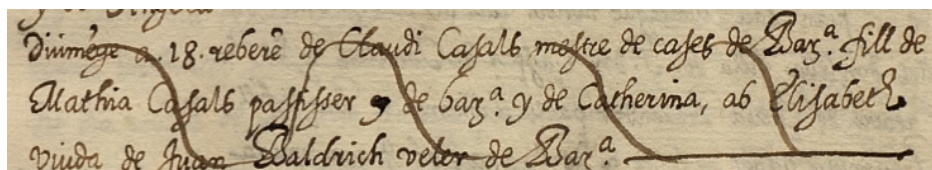 y de Angela
Diumẽge a .18. reberẽ de Claudi Casals mestre de cases de Barª. fill de
Mathia Casals passisser y de barª. y de Catherina, ab Elisabeth
viuda de Juan Baldrich veler de Barª.